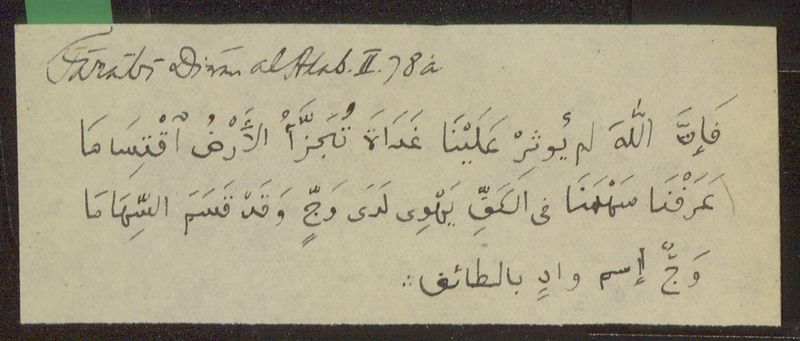 Fārābī Dīwān al Adab. II. 78a
فَإِنَّ اللّٰهَ لم يُوثِرْ عَلَيْنَا غَدَاةَ تُجَزَّأُ الأَرْضُ ٱقْتِسَامَا
عَرَفْنَا سَهْمَنَا فى الكَفِّ يَهْوِى لَدَى وَجٍّ وَقَدْ قَسَمَ السِّهَامَا
وَجٌّ إسم وادٍ بالطائف